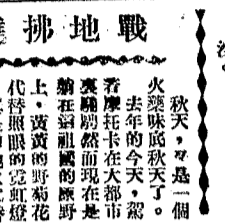 戰地拂
秋天，又是一個
火藥味底秋天了。
去年的今天，駕
着摩托卡在大都市
裏馳騁然而現在是
躺在這祖國的原野
上，黃黃的野菊花
代替照眼的霓虹燈